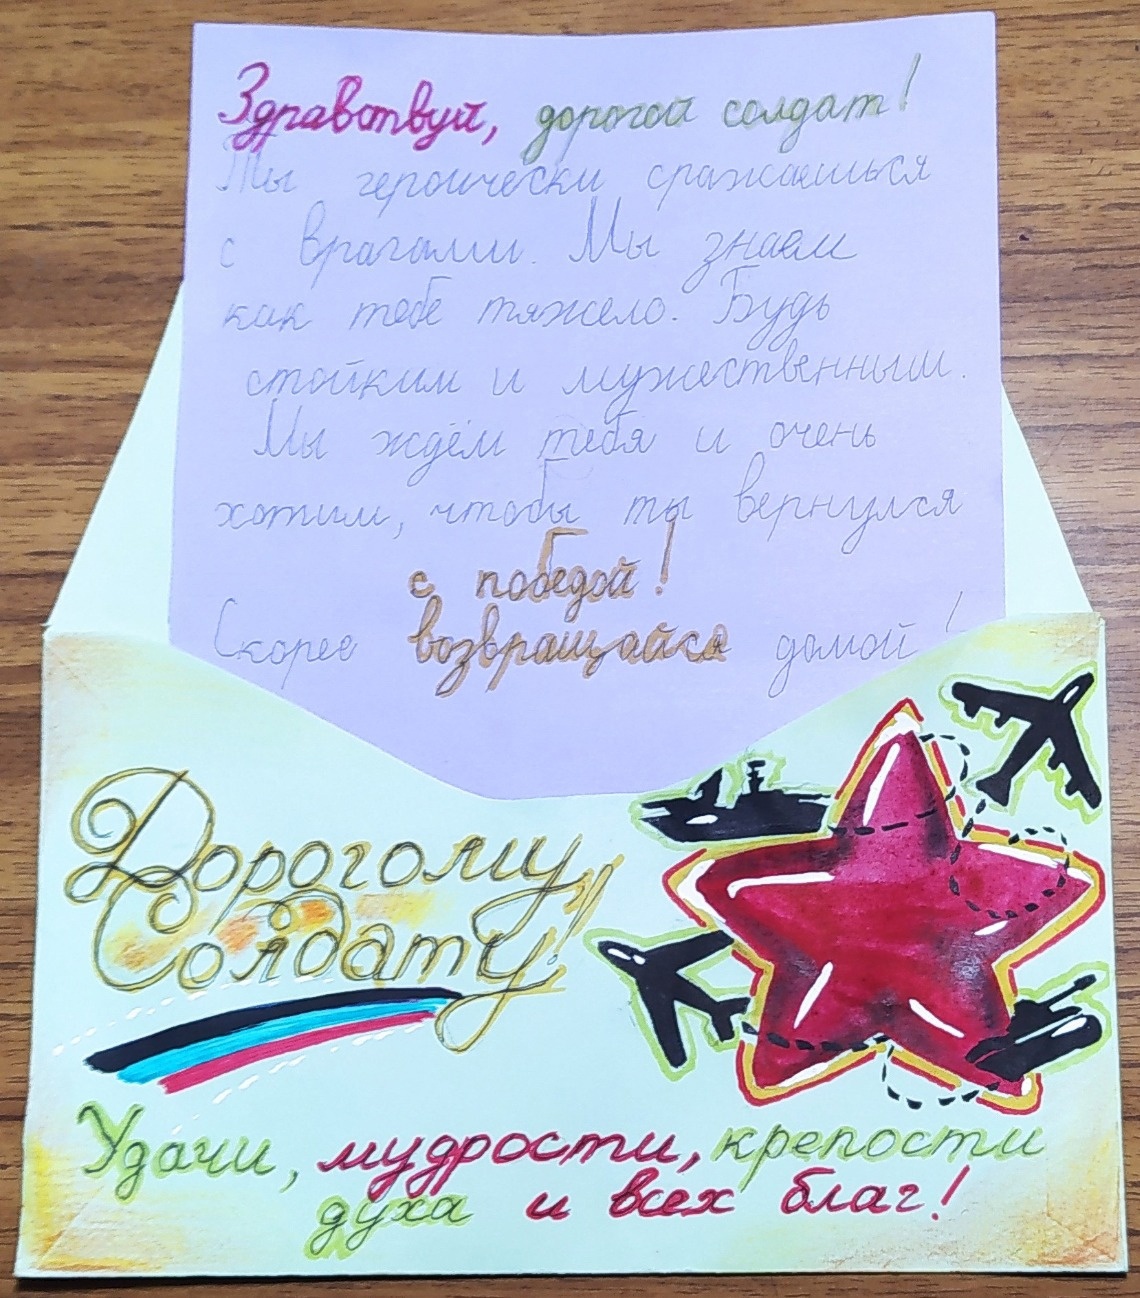 Здравствуй, дорогой солдат!
Ты героически сражаешься
с врагами. Мы знаем
как тебе тяжело. Будь
стойким и мужественным.
Мы ждём тебя и очень
хотим, чтобы ты вернулся
с победой!
Скорее возвращайся домой!
Дорогому
Солдату!
Удачи, мудрости, крепости
духа и всех благ!